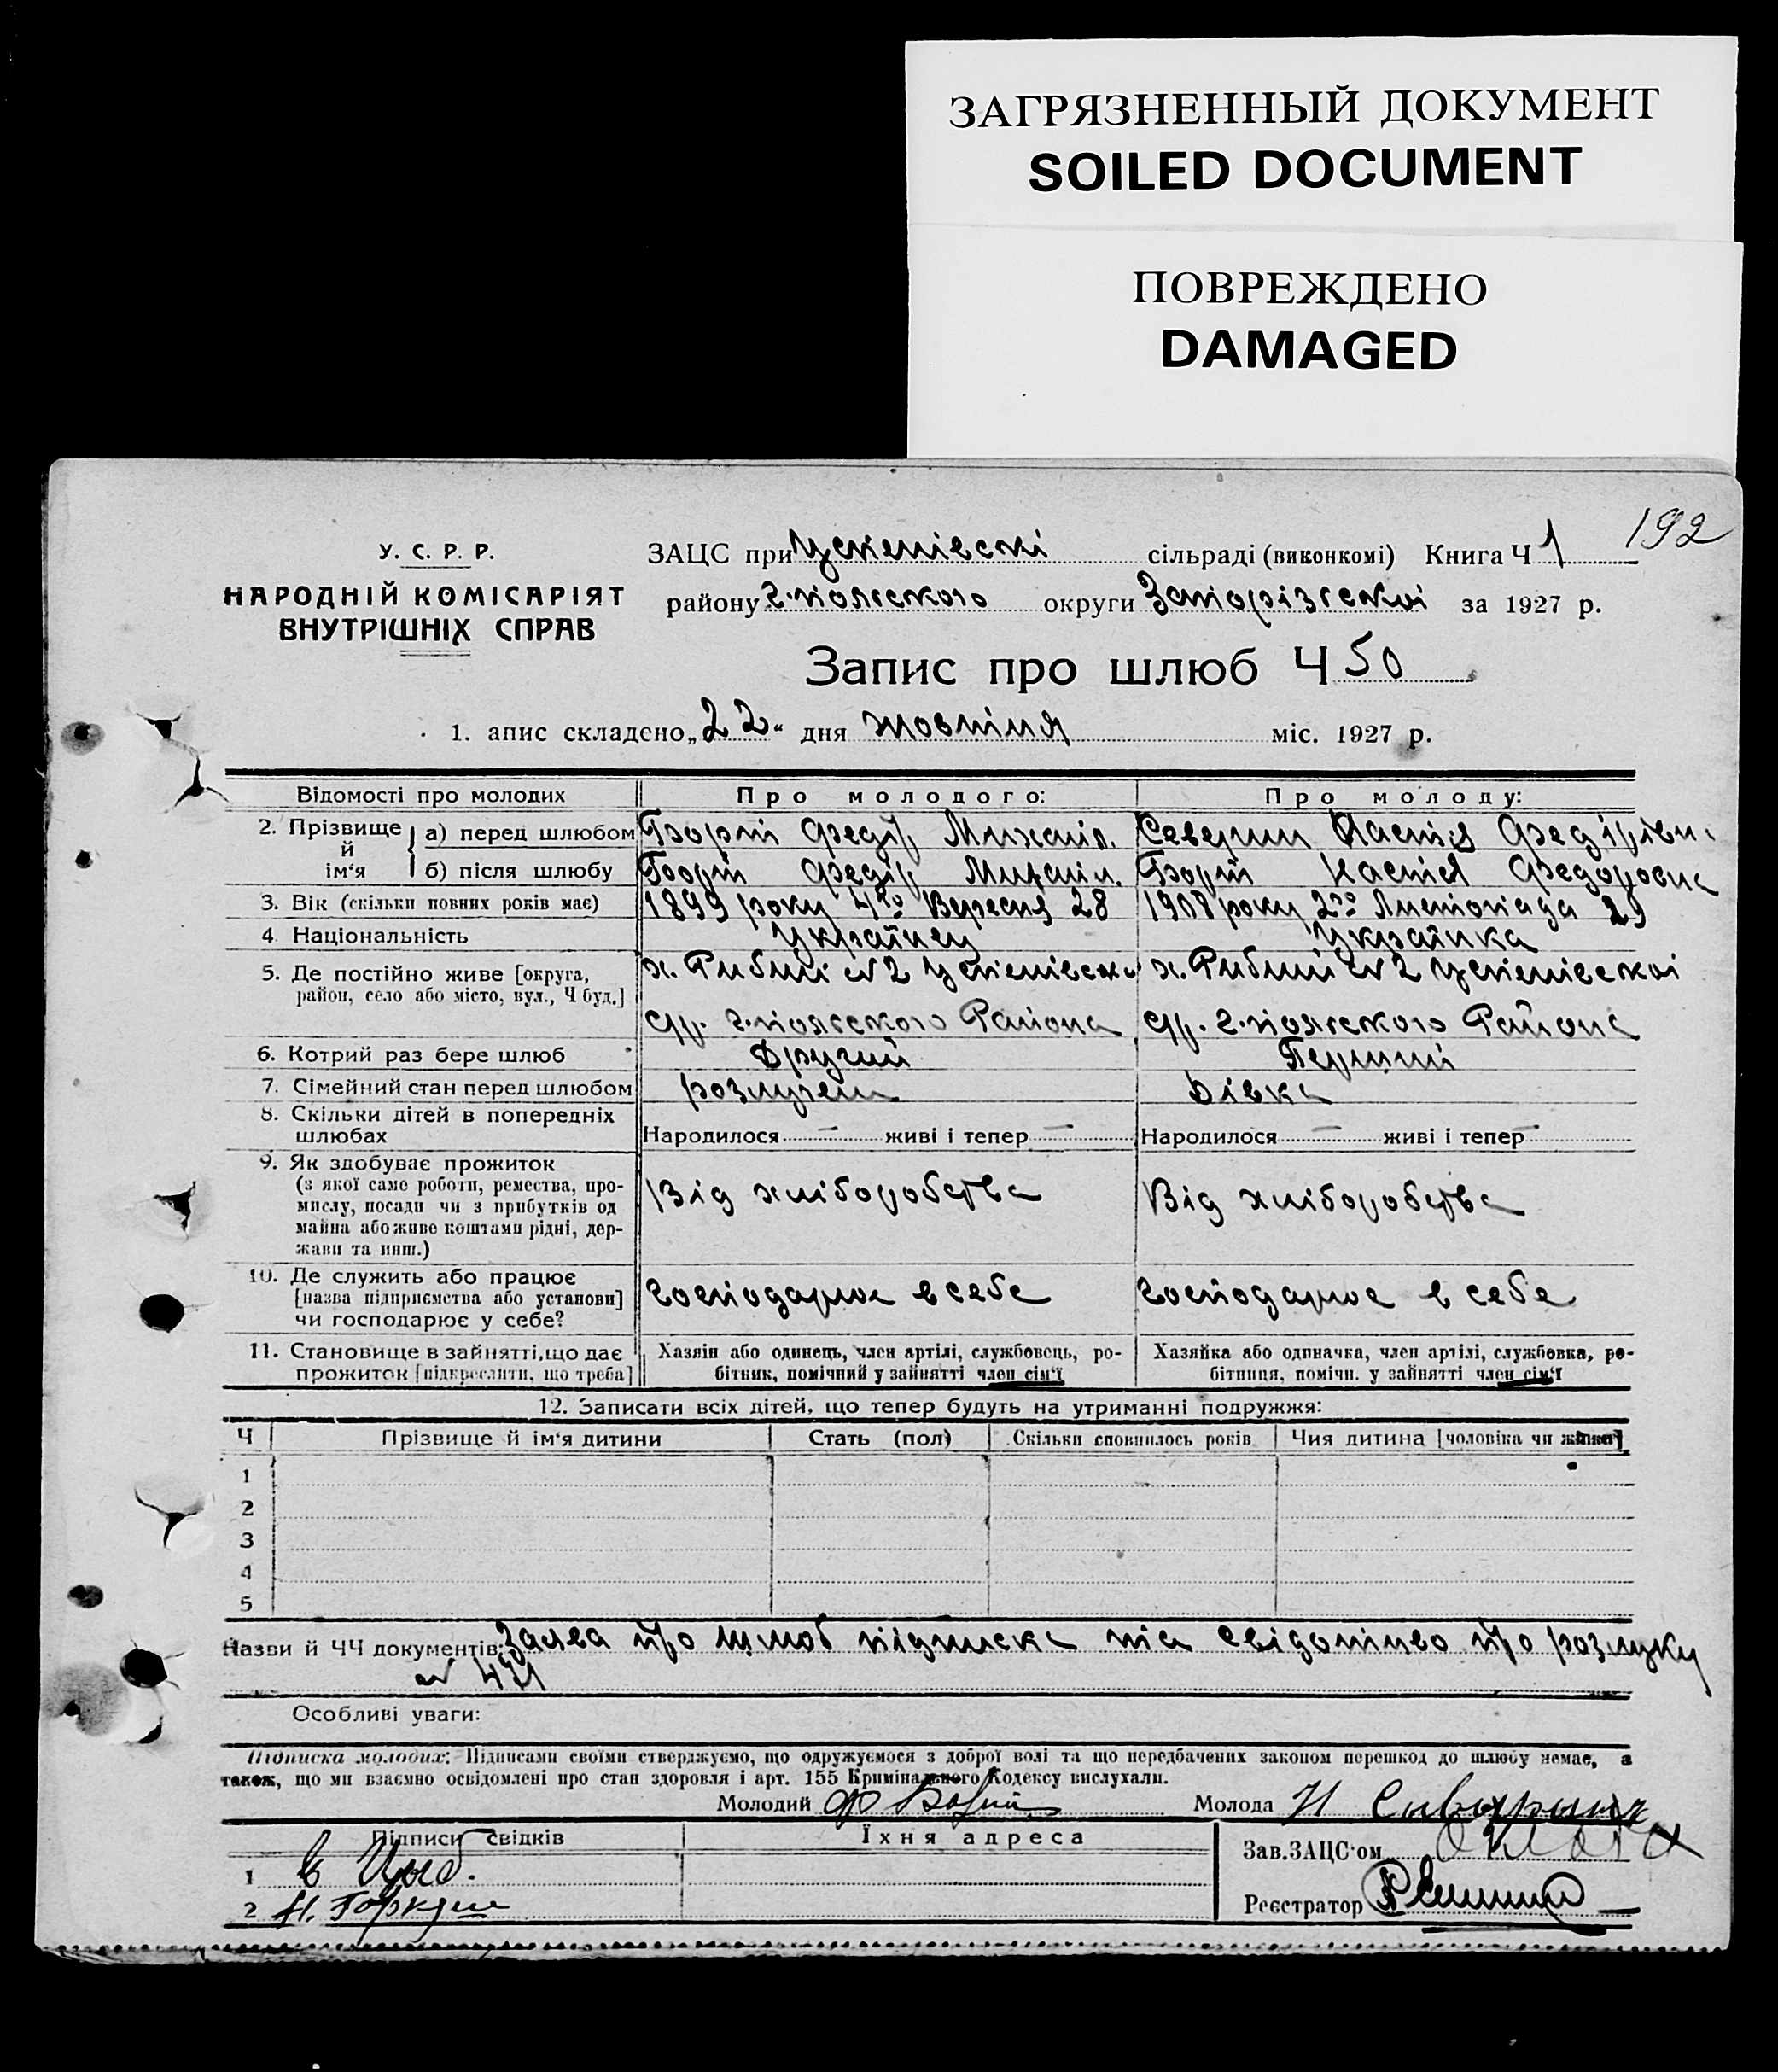 ЗАГРЯЗНЕННЫЙ ДОКУМЕНТ
SOILED DOCUMENT
ПОВРЕЖДЕНО
DAMAGED
192
У. С. Р. Р.
НАРОДНІЙ КОМІСАРІЯТ
ВНУТРІШНІХ СПРАВ
ЗАЦС при Успенівскі сільраді (виконкомі) Книга Ч 1
району г.-польского округи Запорізської за 1927 р.
Запис про шлюб Ч 50
1. апис складено „22“ дня жовтня міс. 1927 р.
Відомості про молодих Про молодого: Про молоду:
2. Прізвище й ім‘я
а) перед шлюбом Борт Федір Михаіл. Северин Настя Федірівн
б) після шлюбу Борт Федір Михаіл. Борт Настя Федоровна
3. Вік (скільки повних років має) 1899 року 4го Вересня 28 1908 року 2го Листопада
4. Національність Українец Українка
5. Де постійно живе [округа, район, село або місто, вул., Ч буд.] х. Рибний №2 Успенівскої х. Рибний №2 Успенівскої
с/р. г.-польского Района с/р. г.-польского Района
6. Котрий раз бере шлюб Другий Перший
7. Сімейний стан перед шлюбом розлучен Дівка
8. Скільки дітей в попередніх шлюбах Народилося — живі і тепер — Народилося — живі і тепер —
9. Як здобуває прожиток
(з якої саме роботи, ремества, про-
мислу, посади чи з прибутків од
майна або живе коштами рідні, дер-
жави та инш.)
Від хліборобства Від хліборобства
10. Де служить або працює
[назва підприємства або установи]
чи господарює у себе?
Господарює в себе Господарює в себе
11. Становище в зайнятті, що дає
прожиток [підкреслити, що треба]
Хазяїн або одинець, член артілі, службовець, ро-
бітник, помічний у зайнятті член сім‘ї
Хазяйка або одиначка, член артілі, службовка, ро-
бітниця, помічн. у зайнятті член сім‘ї
12. Записати всіх дітей, що тепер будуть на утриманні подружжя:
Ч Прізвище й ім‘я дитини Стать (пол) Скільки сповнилось років Чия дитина [чоловіка чи жінки]
1
2
3
4
5
Назви й ЧЧ документів: Заява про шлюб підписка та свідотство про розлуку
№ 471
Особливі уваги:
Підписка молодих: Підписами своїми стверджуємо, що одружуємося з доброї волі та що передбачених законом перешкод до шлюбу немає, а
також, що ми взаємно освідомлені про стан здоровля і арт. 155 Кримінального Кодексу вислухали.
Молодий Ф Борт Молода Н
Підписи свідків Їхня адреса Зав. ЗАЦС‘ом
1
2 Реєстратор